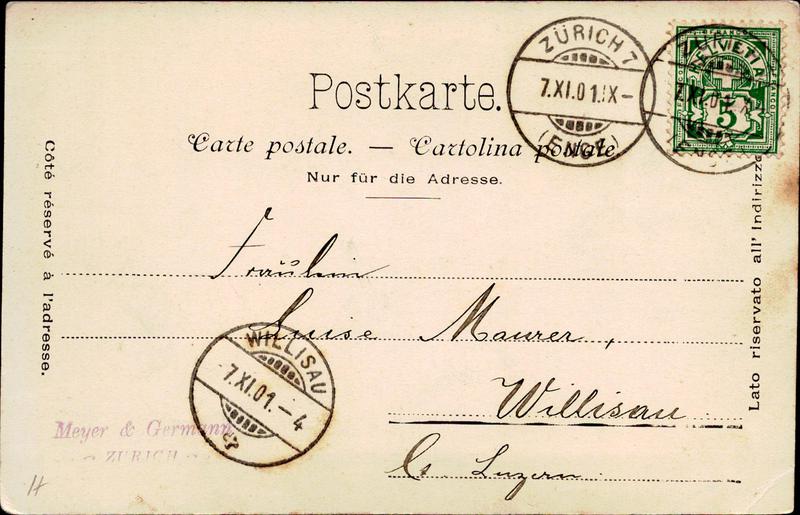 Postkarte.
Carte postale. — Cartolina postale.
Nur für die Adresse.
Côté réservé à l'adresse.
Lato riservato all' Indirizzo
ZÜRICH 7
7.XI.01.IX-
(ENGE)
HELVETIA
7.XI.01.IX-
5
Fräulein
Luise Maurer,
Willisau
Ct. Luzern
WILLISAU
7.XI.01.-4
Meyer & Germann
ZÜRICH